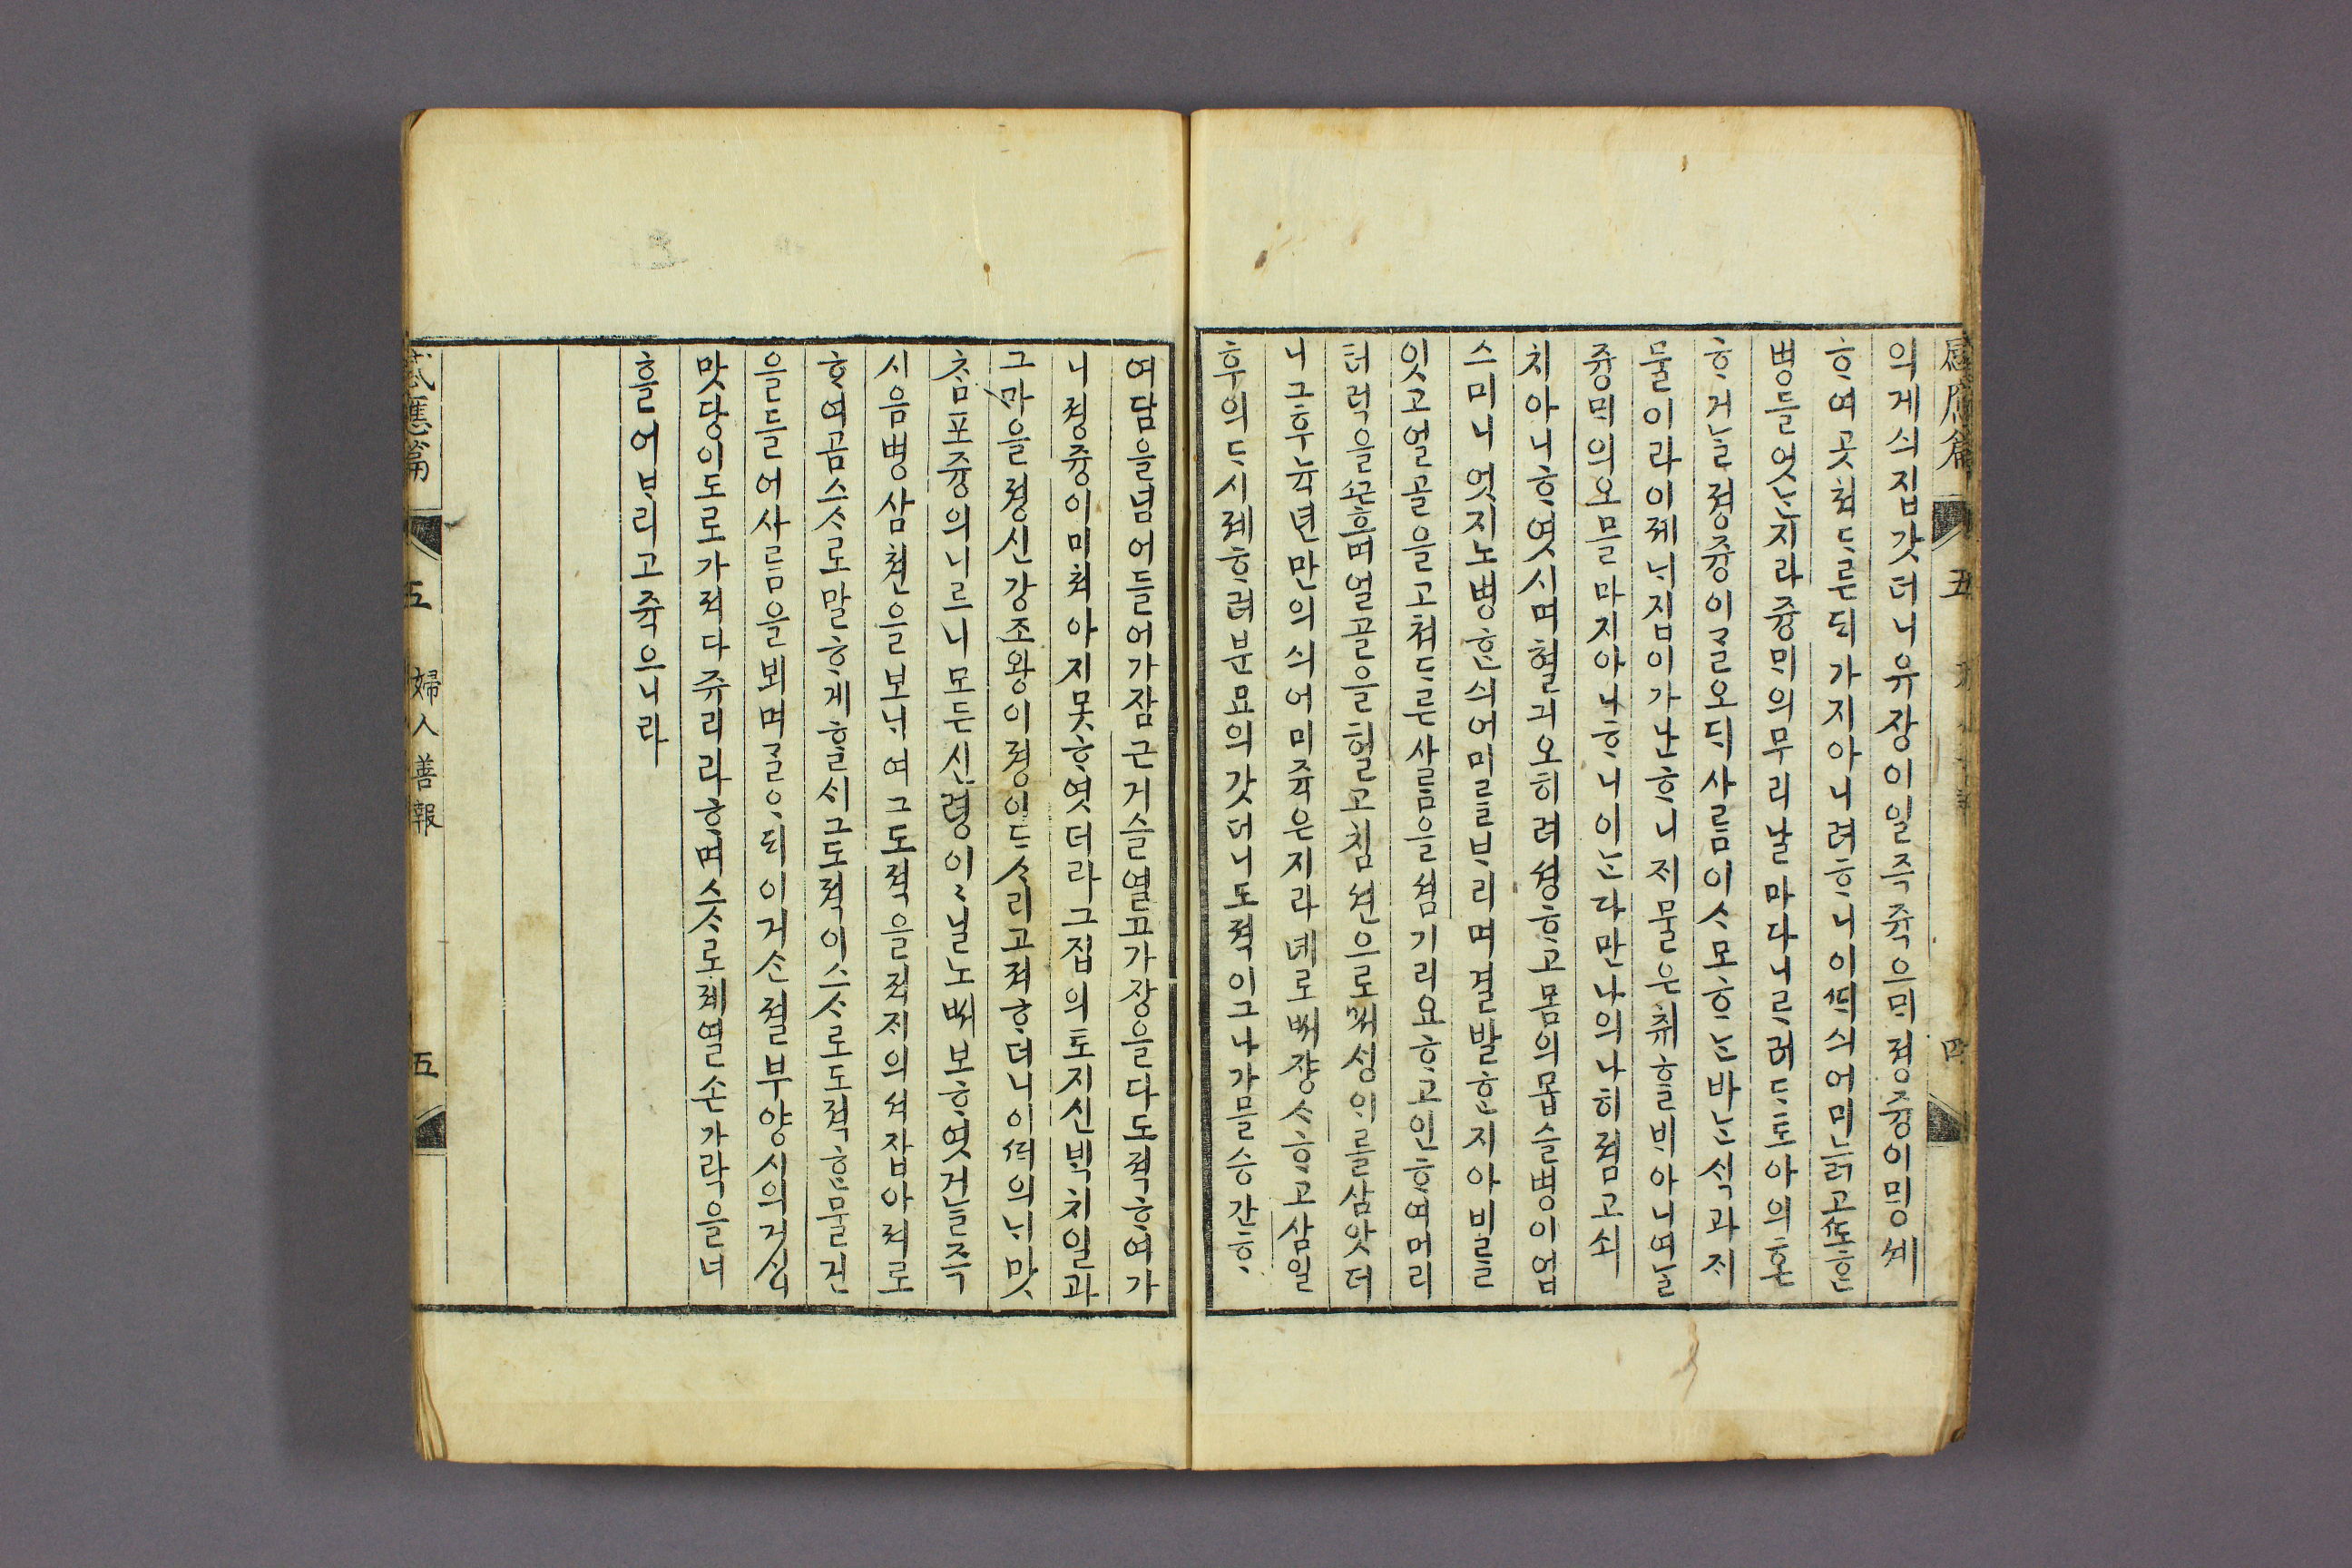 의게싀집갓더니유장이일즉쥭으ᄆᆡ졍즁이ᄆᆡᆼ셰
ᄒᆞ여곳쳐드르ᄃᆡ가지아니려ᄒᆞ니이ᄯᆡ싀어미늙고ᄯᅩᄒᆞᆫ
병들엇ᄂᆞᆫ지라즁ᄆᆡ의무리날마다니ᄅᆞ러드토아의혼
ᄒᆞ거ᄂᆞᆯ졍즁이ᄀᆞᆯ오ᄃᆡ사ᄅᆞᆷ이ᄉᆞ모ᄒᆞᄂᆞᆫ바ᄂᆞᆫ식과ᄌᆡ
물이라이졔ᄂᆡ집이가난ᄒᆞ니ᄌᆡ물은취ᄒᆞᆯᄇᆡ아니여ᄂᆞᆯ
즁ᄆᆡ의오믈마지아니ᄒᆞ니이ᄂᆞᆫ다만나의나히졈고ᄉᆡᆨ
치아니ᄒᆞ엿시며혈긔오히려셩ᄒᆞ고몸의몹슬병이업
스미니엇지노병ᄒᆞᆫ싀어미ᄅᆞᆯᄇᆞ리며결발ᄒᆞᆫ지아비를
잇고얼골을고쳐드른사ᄅᆞᆷ을셤기리요ᄒᆞ고인ᄒᆞ여머리
터럭을ᄭᅳᆫ흐며얼골을헐고침션으로ᄡᅥᄉᆡᆼ이를삼앗더
니그후뉵년만의싀어미쥭은지라녜로ᄡᅥ쟝ᄉᆞᄒᆞ고삼일
후의드시졔ᄒᆞ려분묘의갓더니도젹이그나가믈승간ᄒᆞ
여담을넘어들어가잠근거슬열고가장을다도젹ᄒᆞ여가
니졍즁이미쳐아지못ᄒᆞ엿더라그집의토지신ᄇᆡᆨ치일과
그마을졍신강조왕이졍이ᄃᆞᄉᆞ리고져ᄒᆞ더니이ᄯᆡ의ᄂᆡ맛
ᄎᆞᆷ포즁의니르니모든신령이〻닐노ᄡᅥ보ᄒᆞ엿거ᄂᆞᆯ즉
시음병삼쳔을보ᄂᆡ여그도젹을젹ᄌᆡ의셔잡아져로
ᄒᆞ여곰스ᄉᆞ로말ᄒᆞ게ᄒᆞᆯᄉᆡ그도젹이스ᄉᆞ로도젹ᄒᆞᆫ물건
을들어사ᄅᆞᆷ을뵈며ᄀᆞᆯᄋᆞᄃᆡ이거슨졀부양시의거신
맛당이도로가져다쥬리라ᄒᆞ며스ᄉᆞ로졔열손가락을너
흘어ᄇᆞ리고쥭으니라
感應篇 五 婦人善報 五